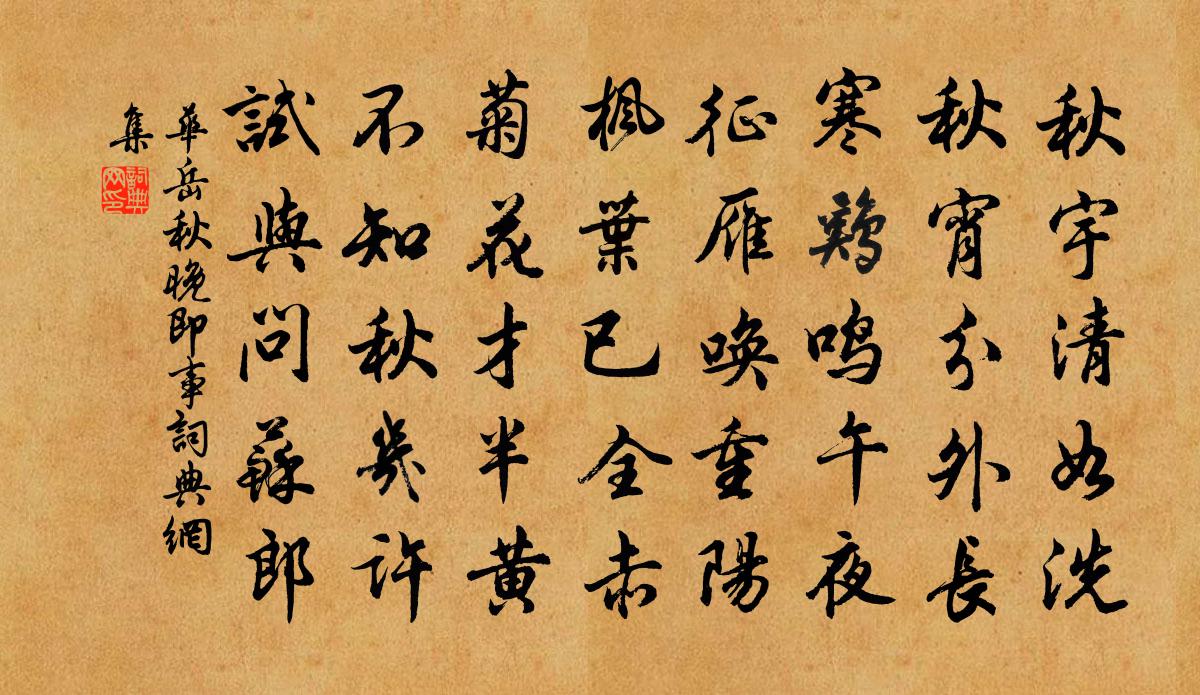 秋宇清如洗
秋宵分外長
寒鷄鳴午夜
征雁喚重陽
楓葉已全赤
菊花才半黃
不知秋幾許
試與問蘇郎
華岳秋晚即事詞典網
集
詞典
网印